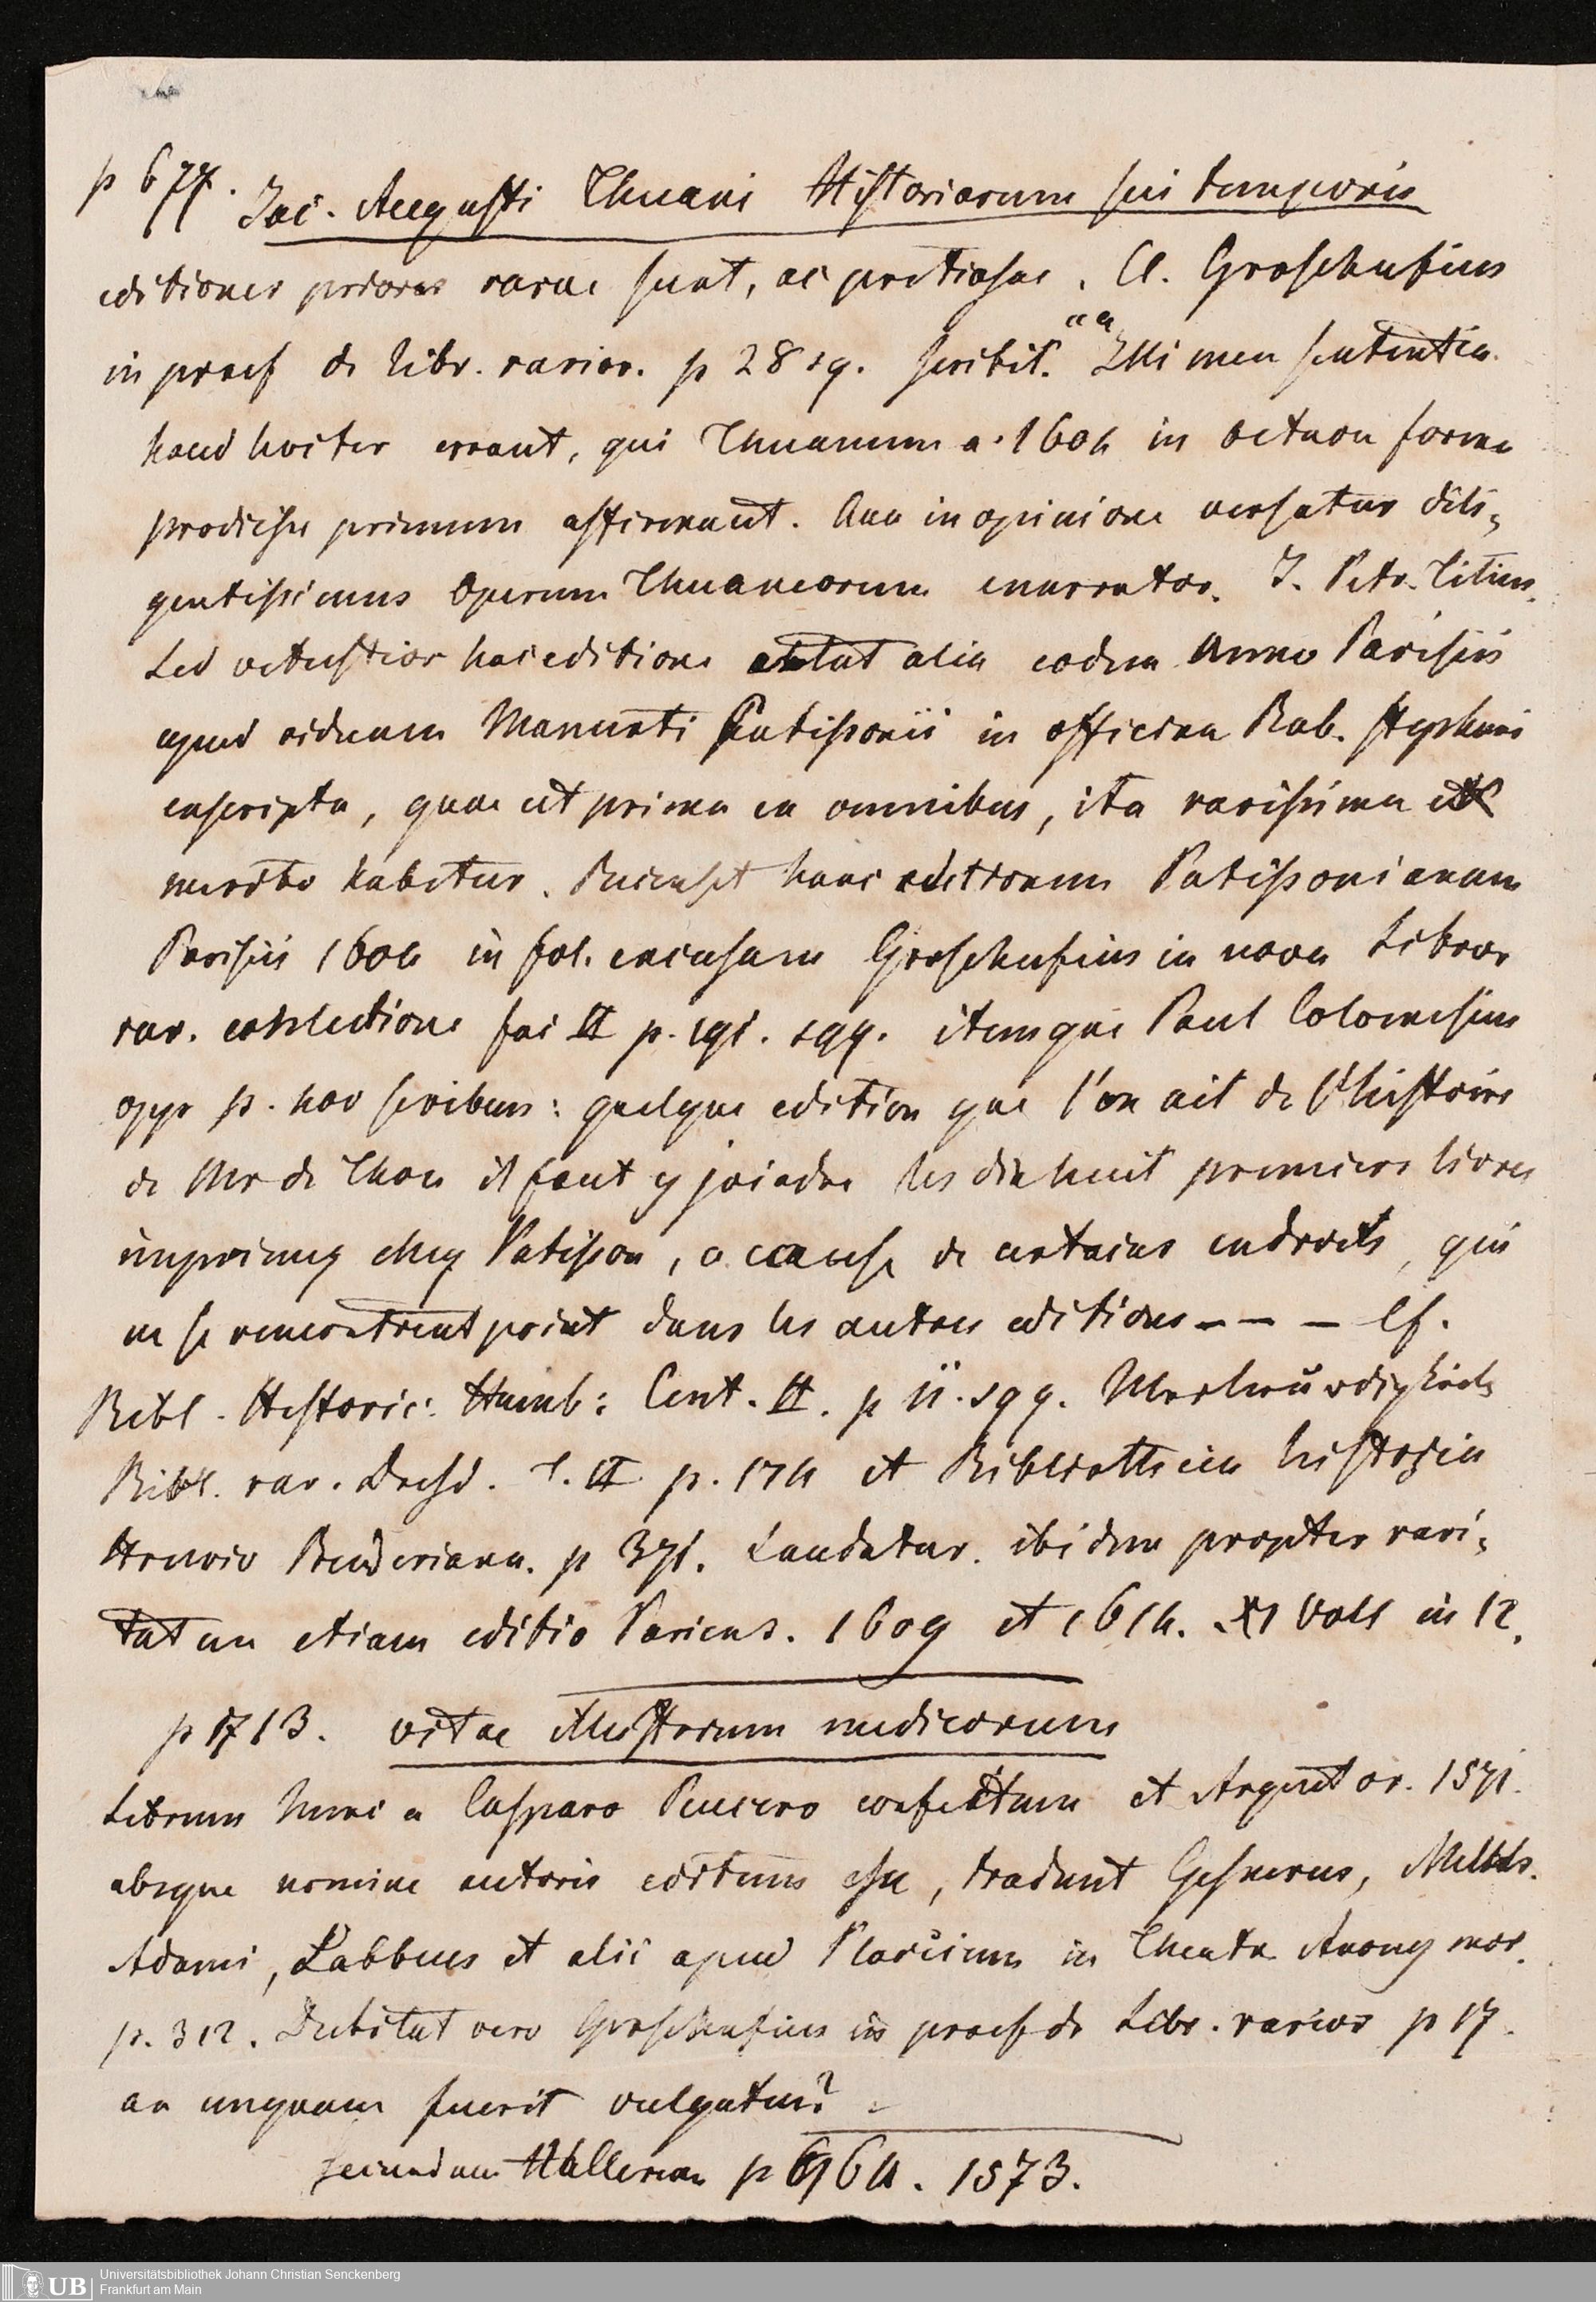 p 677. Jac. Augusti Thuani Historiarum sui temporis
editiones priores rarae sunt, ac pretiosae. Cl. Groschufius
in praef de libr. rarior. p 28 sq. scribit. "Illi mea sententia
haud leviter errant, qui Thuanum a. 1604 in octava forma
prodiisse primum affirmant. Qua in opinione versatur dili-
gentissimus Operum Thuaneorum enarrator. J. Petr. Titius.
Sed vetustior hac editione extat alia eodem anno Parisiis
apud viduam Mamerti Patissonii in officina Rob. Stephani
exscripta, quae ut prima ex omnibus, ita rarissima
merito habetur. Recenset hanc editionem Patissonianam
Parisiis 1604 in fol. excusam Groschufius in nova Libror
rar. collectione fac II p. 191. sqq. itemque Paul Colomesius
opp p. scribens: quelque edition que l'on ait de l'histoire
de Mr de Thou il faut y joindre les dixhuit premiers livres
imprimez chez Patisson, a cause de certains endroits, qui
ne se rencontrent point dans les autres editions - - - Cf.
Bibl. Historic. Hamb: Cent. II. p 11. sqq. Merkwürdigkeit
Bibl. rar. Dresd. T. II p. 174 et Bibliotheca historica
Struvio Buderiana. p 371. Laudatur ibidem propter rari-
tatem etiam editio Pariens. 1609 et 1614. XI Voll in 12.
p 1713. vitae illustrium medicorum
Librum hunc a Casparo Peucero confectum et Argentor. 1571.
absque nomine autoris editum esse, tradunt Gesnerus, Melch.
Adami, Labbeus et alii apud Placcium in Theatr. Anonymor.
p. 312. Dubitat vero Groschufius in praef de Libr. rarior p 17.
an unquam fuerit vulgatus?
secundum Hallerum p 1573.